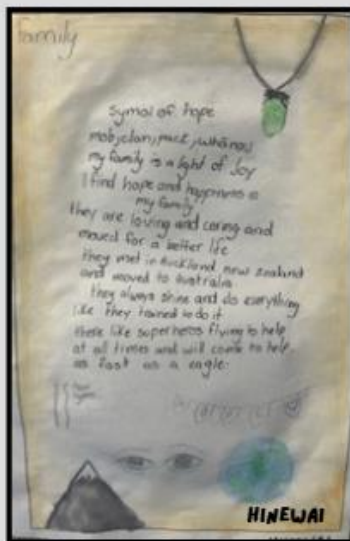 family
symbol of hope
mob, clan, pack, whānau
my family is a light of Joy
I find hope and happiness in
my family
they are loving and caring and
moved for a better life
they met in Auckland new zealand
and moved to Australia
they always shine and do everything
like they trained to do it
there like superheros flying to help
at all times and will come to help
as fast as a eagle.
HINEWAI